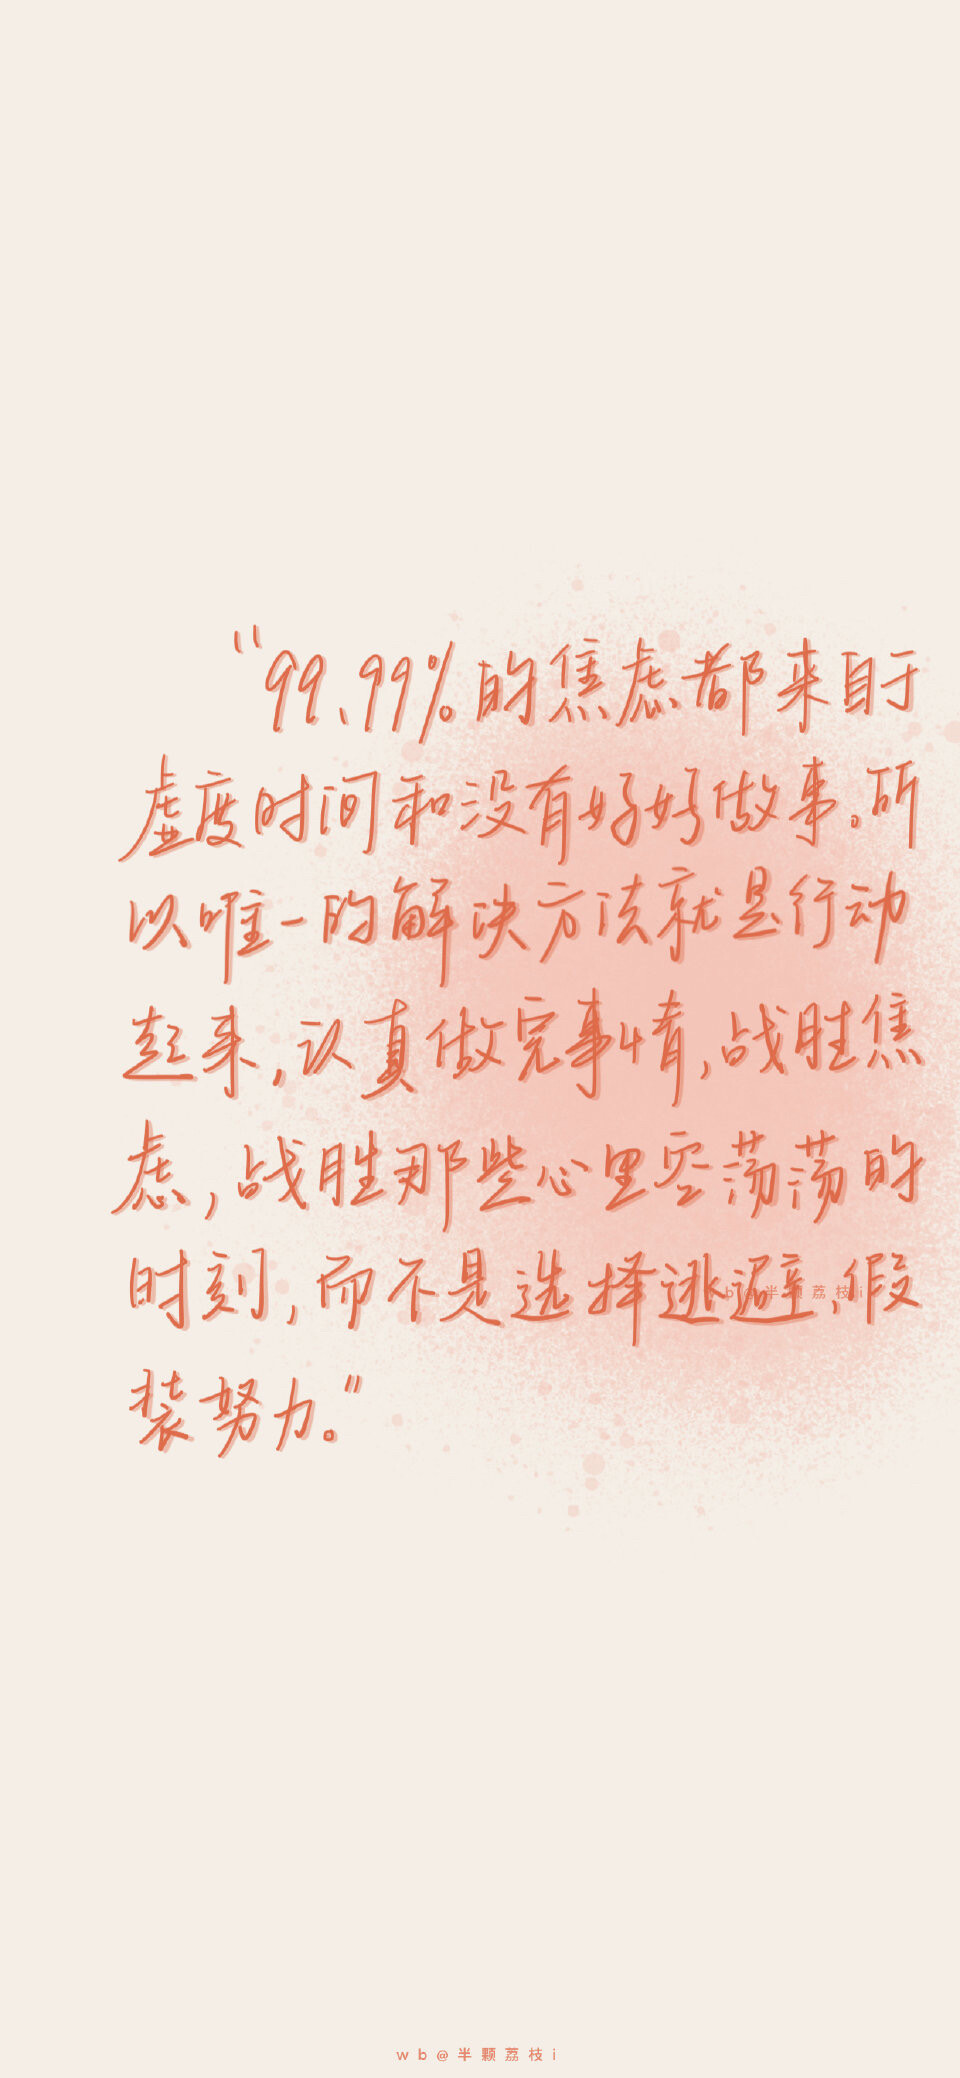 “99.99%的焦虑都来自于
虚度时间和没有好好做事。所
以唯一的解决方法就是行动
起来，认真做完事情，战胜焦
虑，战胜那些心里空荡荡的
时刻，而不是选择逃避，假
装努力。”
wb@半颗荔枝i
wb@半颗荔枝i